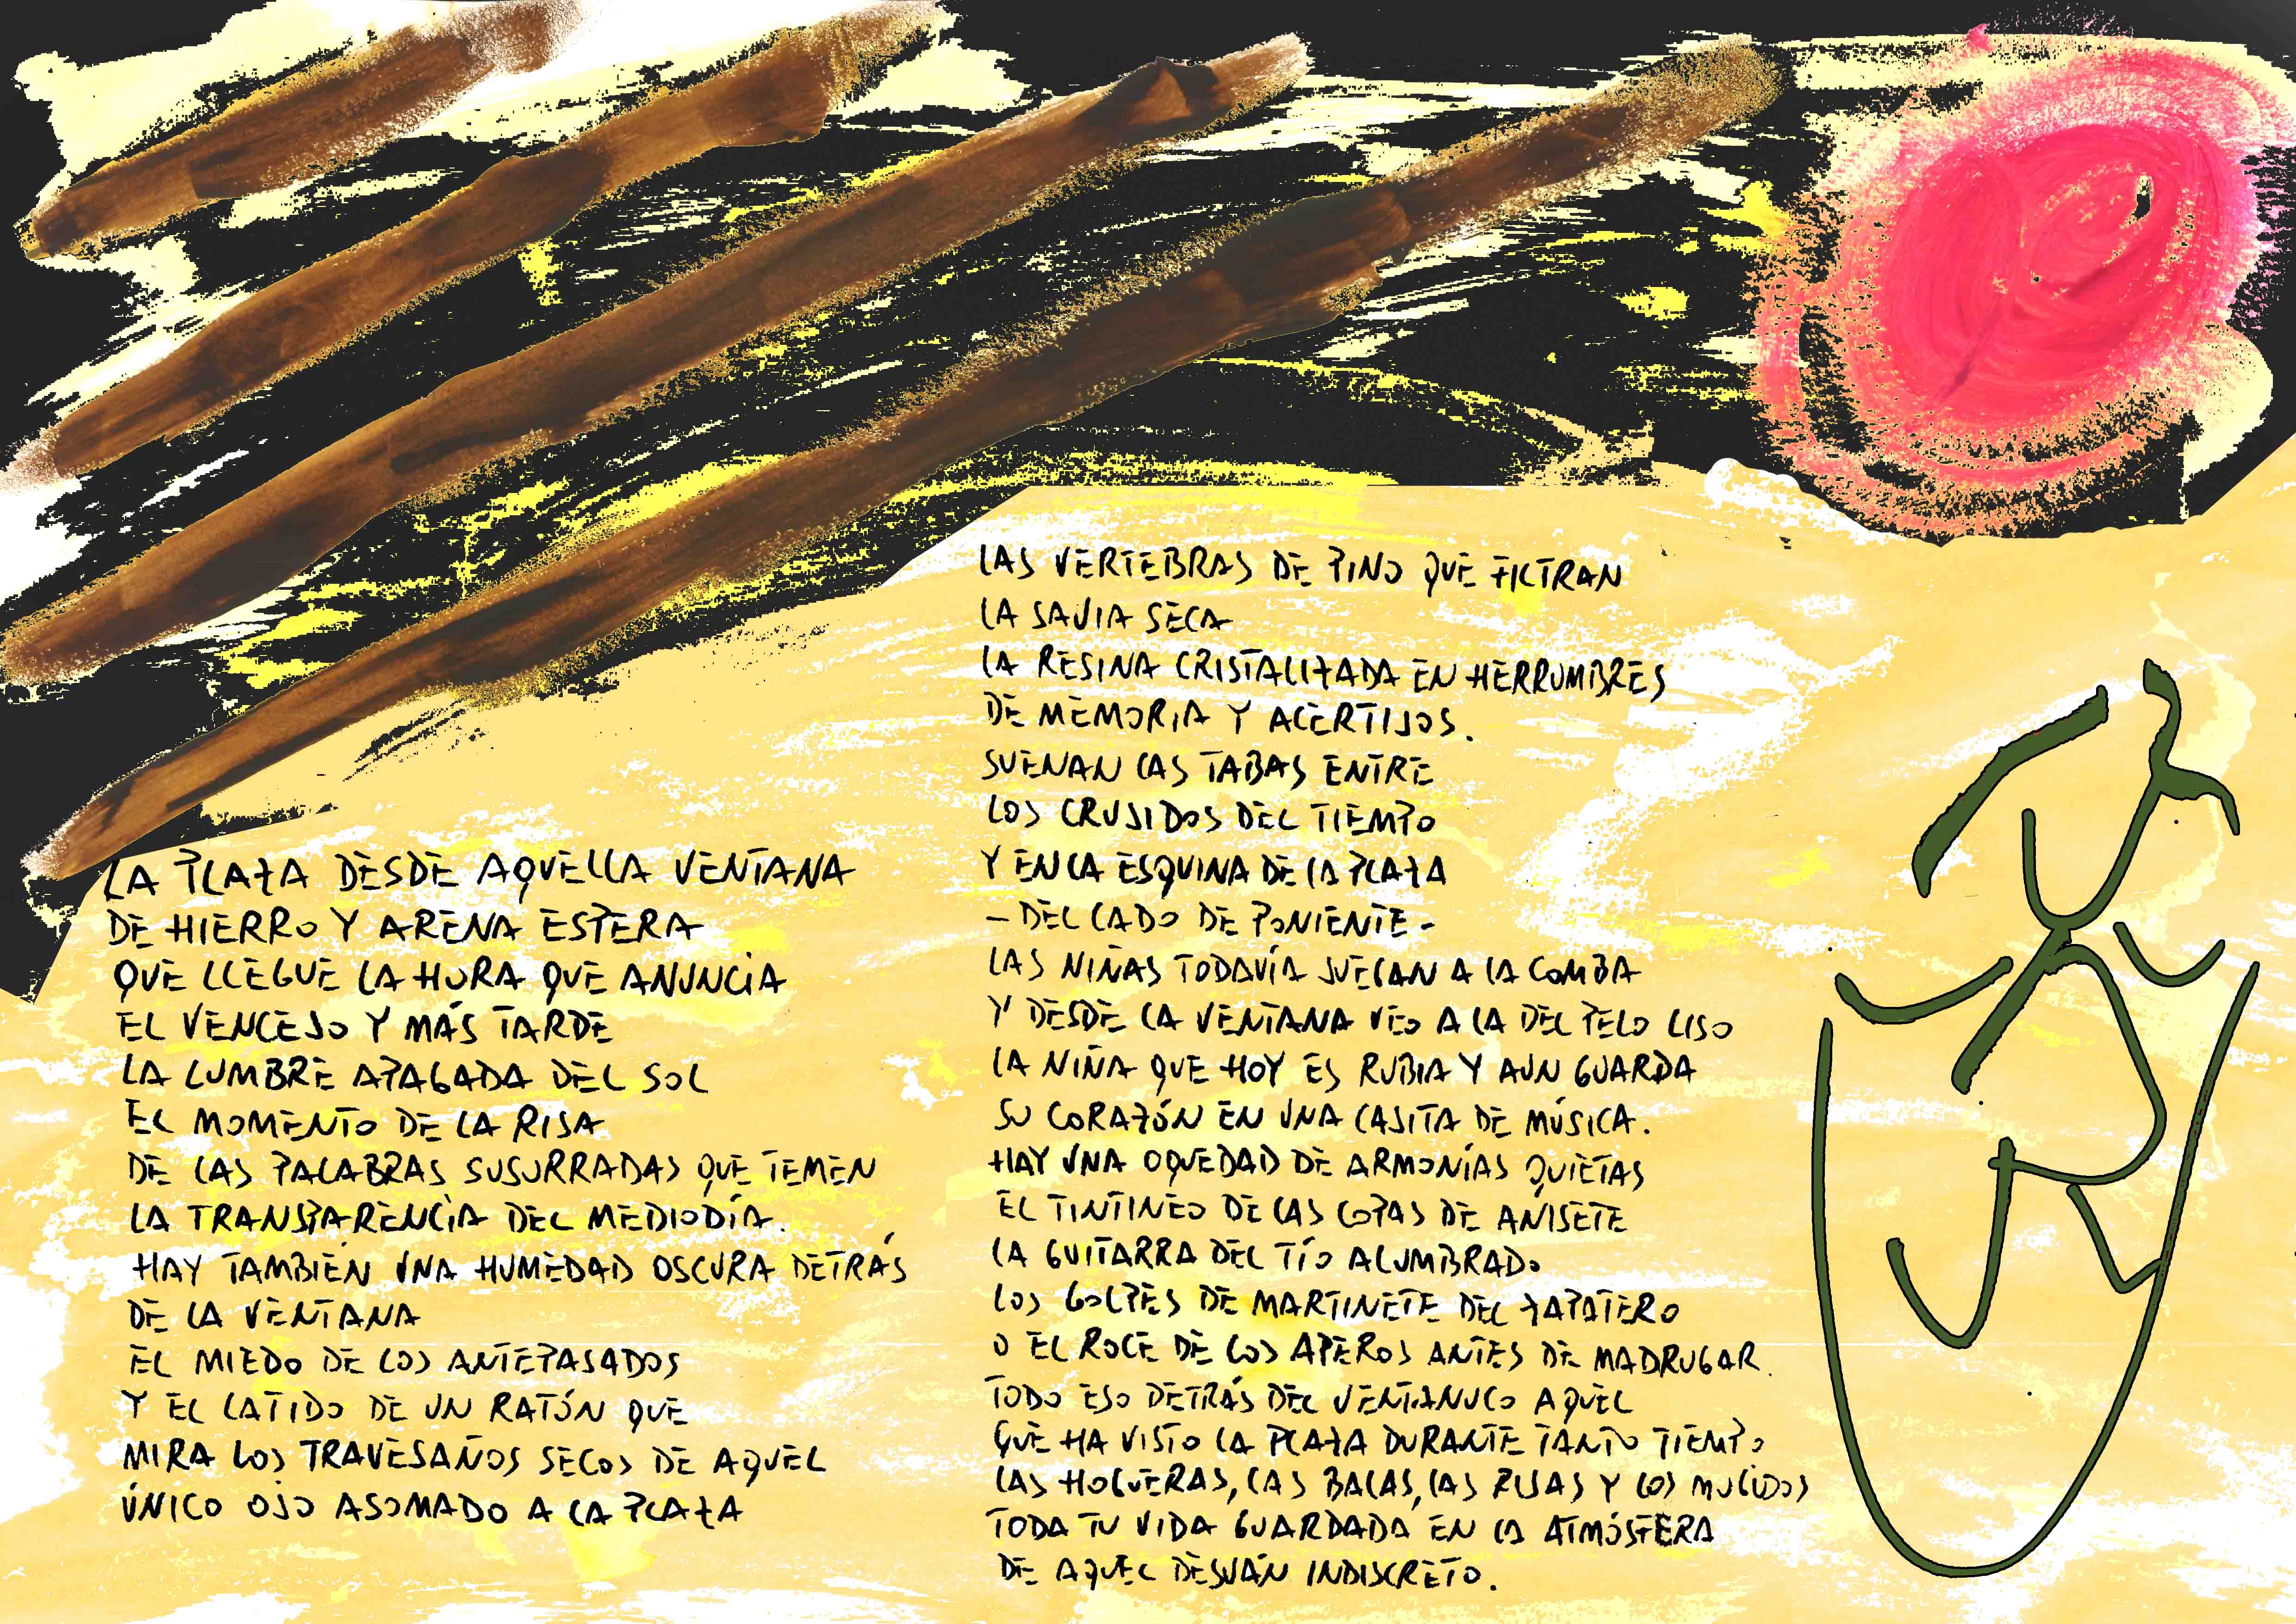 LA PLAZA DESDE AQUELLA VENTANA
DE HIERRO Y ARENA ESPERA
QUE LLEGUE LA HORA QUE ANUNCIA
EL VENCEJO Y MÁS TARDE
LA LUMBRE APAGADA DEL SOL
EL MOMENTO DE LA RISA
DE LAS PALABRAS SUSURRADAS QUE TEMEN
LA TRANSPARENCIA DEL MEDIODÍA.
HAY TAMBIÉN UNA HUMEDAD OSCURA DETRÁS
DE LA VENTANA
EL MIEDO DE LOS ANTEPASADOS
Y EL LATIDO DE UN RATÓN QUE
MIRA LOS TRAVESAÑOS SECOS DE AQUEL
ÚNICO OJO ASOMADO A LA PLAZA
LAS VERTEBRAS DE PINO QUE FILTRAN
LA SAVIA SECA
LA RESINA CRISTALIZADA EN HERRUMBRES
DE MEMORIA Y ACERTIJOS.
SUENAN LAS TABAS ENTRE
LOS CRUJIDOS DEL TIEMPO
Y EN LA ESQUINA DE LA PLAZA
- DEL LADO DE PONIENTE -
LAS NIÑAS TODAVÍA JUEGAN A LA COMBA
Y DESDE LA VENTANA VEO A LA DEL PELO LISO
LA NIÑA QUE HOY ES RUBIA Y AUN GUARDA
SU CORAZÓN EN UNA CAJITA DE MÚSICA.
HAY UNA OQUEDAD DE ARMONÍAS QUIETAS
EL TINTINEO DE LAS COPAS DE ANISETE
LA GUITARRA DEL TÍO ALUMBRADO
LOS GOLPES DE MARTINETE DEL ZAPATERO
O EL ROCE DE LOS APEROS ANTES DE MADRUGAR.
TODO ESO DETRÁS DEL VENTANUCO AQUEL
QUE HA VISTO LA PLAZA DURANTE TANTO TIEMPO
LAS HOGUERAS, LAS BALAS, LAS RISAS Y LOS MUGIDOS
TODA TU VIDA GUARDADA EN LA ATMÓSFERA
DE AQUEL DESVÁN INDISCRETO.